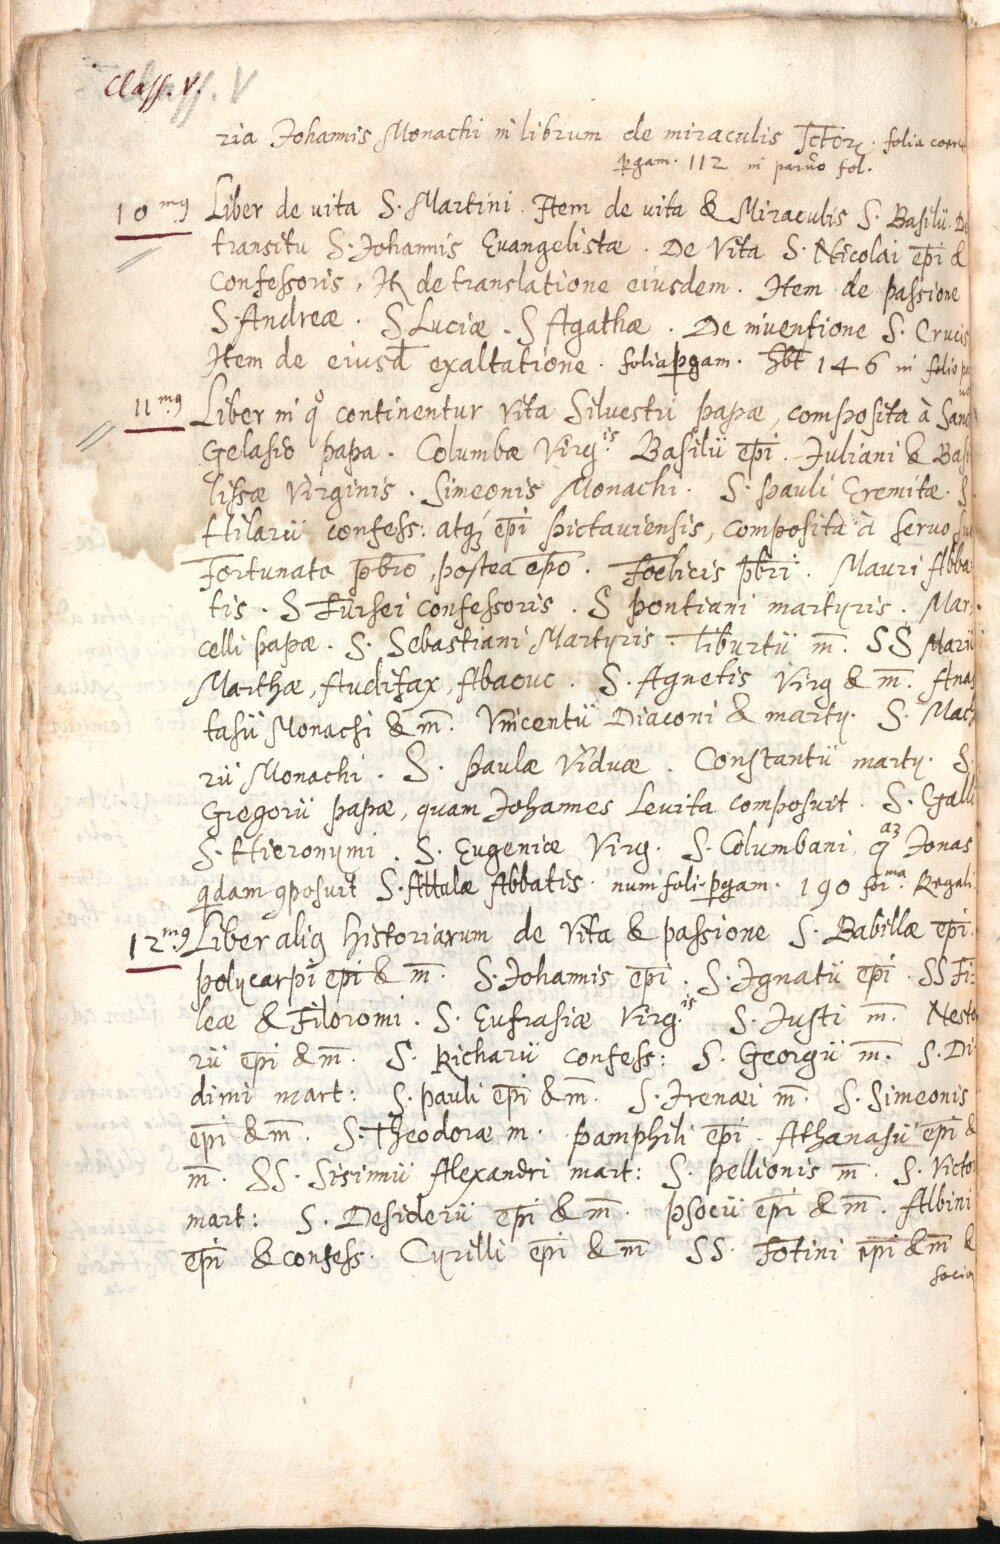 Class. V. Class. V
ria Johannis Monachi in librum de miraculis Sctōrꝫ. folia
p̱gam. 112 in parvo fol.
10mꝰ Liber de vita S. Martini. Item de vita & Miraculis S. Basilii. De
transitu S. Johannis Evangelistæ. De Vita S. Nicolai ep̄i &
Confessoris, It de translatione eiusdem. Item de passione
S. Andreæ. S Luciæ. S Agathæ. De inventione S. Crucis
Item de eiusd̄ exaltatione. folia p̱gam. hb̄t 146 in folio
11mꝰ Liber in qͦ continentur vita Silvestri papæ, composita à Sanc
Gelasio papa. Columbæ Virgis. Basilii ep̄i. Juliani & Basi
lissæ Virginis. Simeonis Monachi. S. Pauli Eremitæ. S.
Hilarii confess: atqꝫ ep̄i Pictaviensis, composita à servo su
Fortunato p̄b̄ro, postea ep̄o. Fœlicis p̄b̄ri. Mauri Abba-
tis. S Fursei confessoris. S Pontiani martyris. Mar-
celli papæ. S. Sebastiani Martyris. Tiburtii m̄. SS Marii
Marthæ, Audifax, Abacuc. S. Agnetis Virg & m̄. Anas
tasii Monachi & m̄. Vincentii Diaconi & marty. S. Mach
rii Monachi. S. Paulæ Viduæ. Constantii marty. S.
Gregorii papæ, quam Johannes Levita composuit. S. Galli
S. Hieronymi. S. Eugeniæ Virg. S. Columbani, qaꝫ Jonas
q̱dam ꝯposuit S. Attalæ Abbatis. num foli. p̱gam. 190 forma. Regali.
12mꝰ Liber aliꝰ Historiarum de Vita & passione S. Babillæ ep̄i.
Polycarpi ep̄i & m̄. S. Johannis ep̄i. S. Ignatii ep̄i. SS Fi-
leæ & Filoromi. S. Eufrasiæ Virgis. S. Justi m̄. Nesto
rii ep̄i & m̄. S. Richarii confess: S. Georgii m̄. S. Di
dimi mart: S. Pauli ep̄i & m̄. S. Irenæi m̄. S. Simeonis
ep̄i & m̄. S. Theodoræ m. Pamphili ep̄i. Athanasii ep̄i &
m̄. SS. Sisinnii Alexandri mart: S. Pellionis m̄. S. Victo
mart: S. Desiderii ep̄i & m̄. Psocii ep̄i & m̄. Albini
ep̄i & confess. Cyrilli ep̄i & m̄ SS. Fotini ep̄i & m̄ &
socio